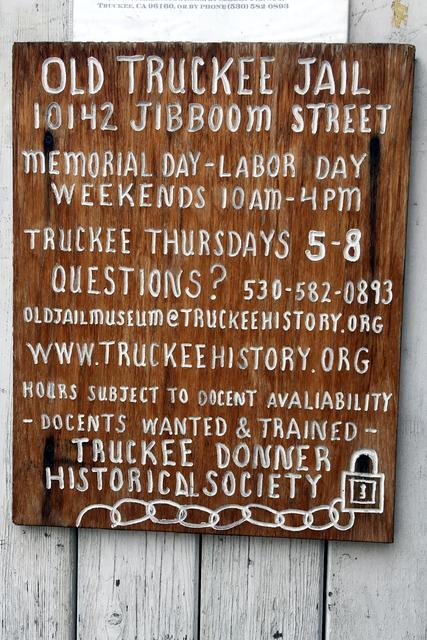 Truckee, CA 96160, or by phone (530) 582 0893
OLD TRUCKEE JAIL
10142 JIBBOOM STREET
MEMORIAL DAY-LABOR DAY
WEEKENDS 10AM-4PM
TRUCKEE THURSDAYS 5-8
QUESTIONS? 530-582-0893
OLDJAILMUSEUM@TRUCKEEHISTORY.ORG
WWW.TRUCKEEHISTORY.ORG
HOURS SUBJECT TO DOCENT AVALIABILITY
- DOCENTS WANTED & TRAINED -
TRUCKEE DONNER
HISTORICAL SOCIETY
3